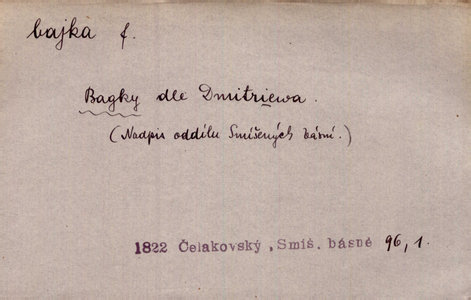 bajka f.
Bagky dle Dmitriewa.
(Nadpis oddílu Smíšených básní.)
1822 Čelakovský, Smíš. básně 96, 1.